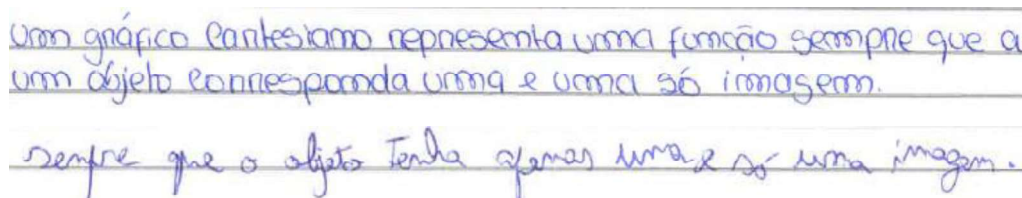 Um gráfico Cartesiano representa uma função sempre que a
um objeto corresponda uma e uma só imagem.
sempre que o objeto Tenha apenas uma e só uma imagem.